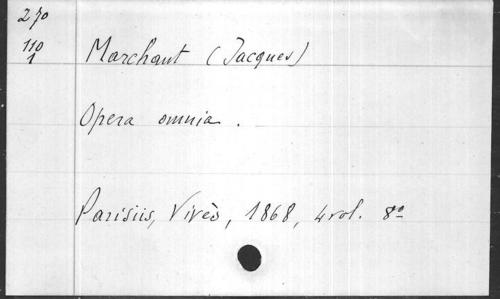 270
110
1
Marchant (Jacques)
Opera omnia.
Parisiis, Vivès, 1868, 4 vol. 8º